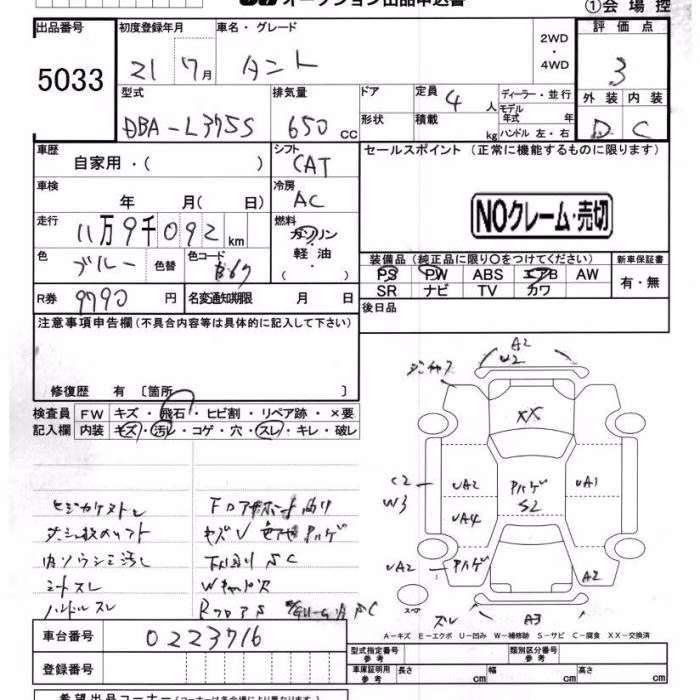 オークション出品申込書
①会場控
出品番号
5033
初度登録年月
21 7月
車名・グレード
タント
2WD
・
4WD
評価点
3
外装 内装
D C
型式
DBA-L375S
排気量
650 cc
ドア
形状
定員 4 人
積載 kg
ディーラー・並行
モデル
年式 年
ハンドル 左・右
車歴
自家用・( )
シフト
CAT
セールスポイント (正常に機能するものに限ります)
NOクレーム・売切
車検
年 月( 日)
冷房
AC
走行
11万9千092 km
燃料
ガソリン
軽油
・( )
色
ブルー
色替
色コード
B67
装備品 (純正品に限り○をつけてください)
PS PW ABS エアB AW
SR ナビ TV カワ
新車保証書
有・無
R券 9790 円
名変通知期限 月 日
後日品
注意事項申告欄 (不具合内容等は具体的に記入して下さい)
修復歴 有 〔箇所 〕
検査員
記入欄
FW キズ・飛石・ヒビ割・リペア跡・×要
内装 キズ・汚レ・コゲ・穴・スレ・キレ・破レ
内ソウシミ汚レ
シートスレ
ハンドルスレ
下回りSC
A2
U2
XX
C2
W3
UA2
UA4
UA1
S2
UA2
A2
スペア
ズレ
A3
A-キズ E-エクボ U-凹み W-補修跡 S-サビ C-腐食 XX-交換済
車台番号 0223716
登録番号
型式指定番号
参考
類別区分番号
参考
車庫証明用
参考
長さ cm 幅 cm 高さ cm
希望出品コーナー